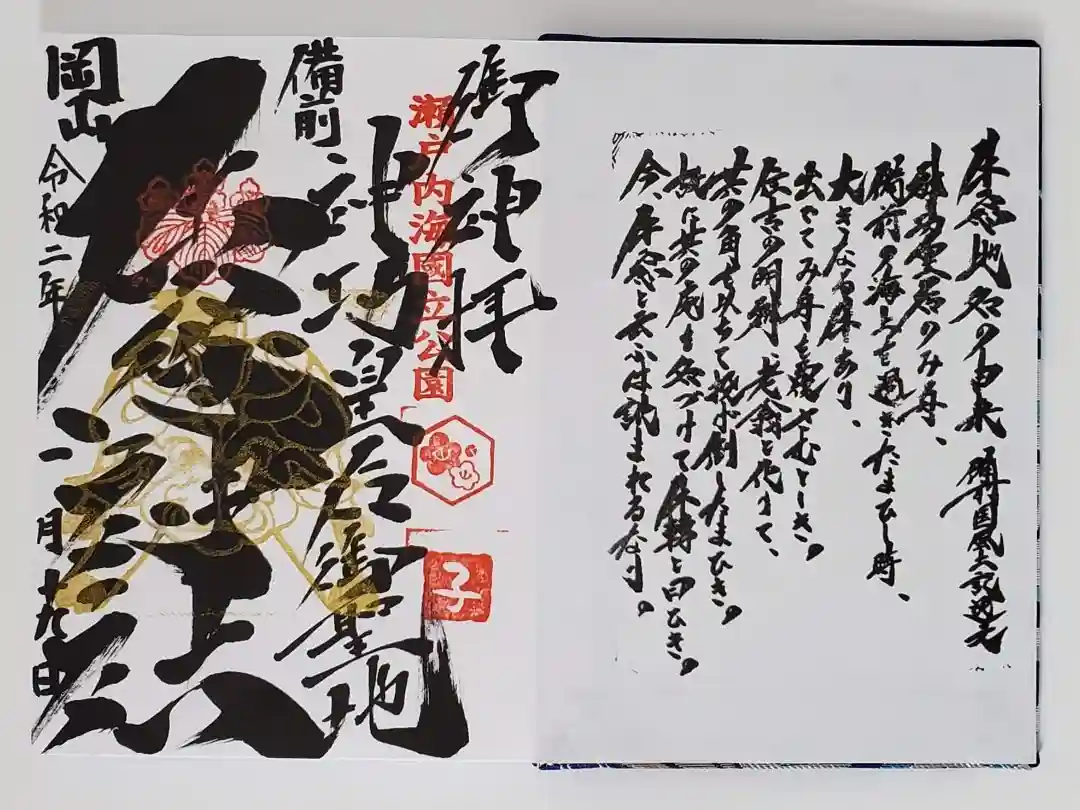 牛窓地名の由来 備前国風土記逸文
神功皇后のみ舟、
備前の海上を過ぎたまひし時、
大きなる牛あり、
出でてみ舟を覆さむとしき。
住吉の明神、老翁と化りて、
其の角を以ちて投げ倒したまひき。
故に其の処を名づけて牛轉と曰ひき。
今、牛窓と云ふは訛まれるなり。
御神拝
瀬戸内海國立公園
子
備前
神功皇后御聖地
岡山
令和二年一月九日